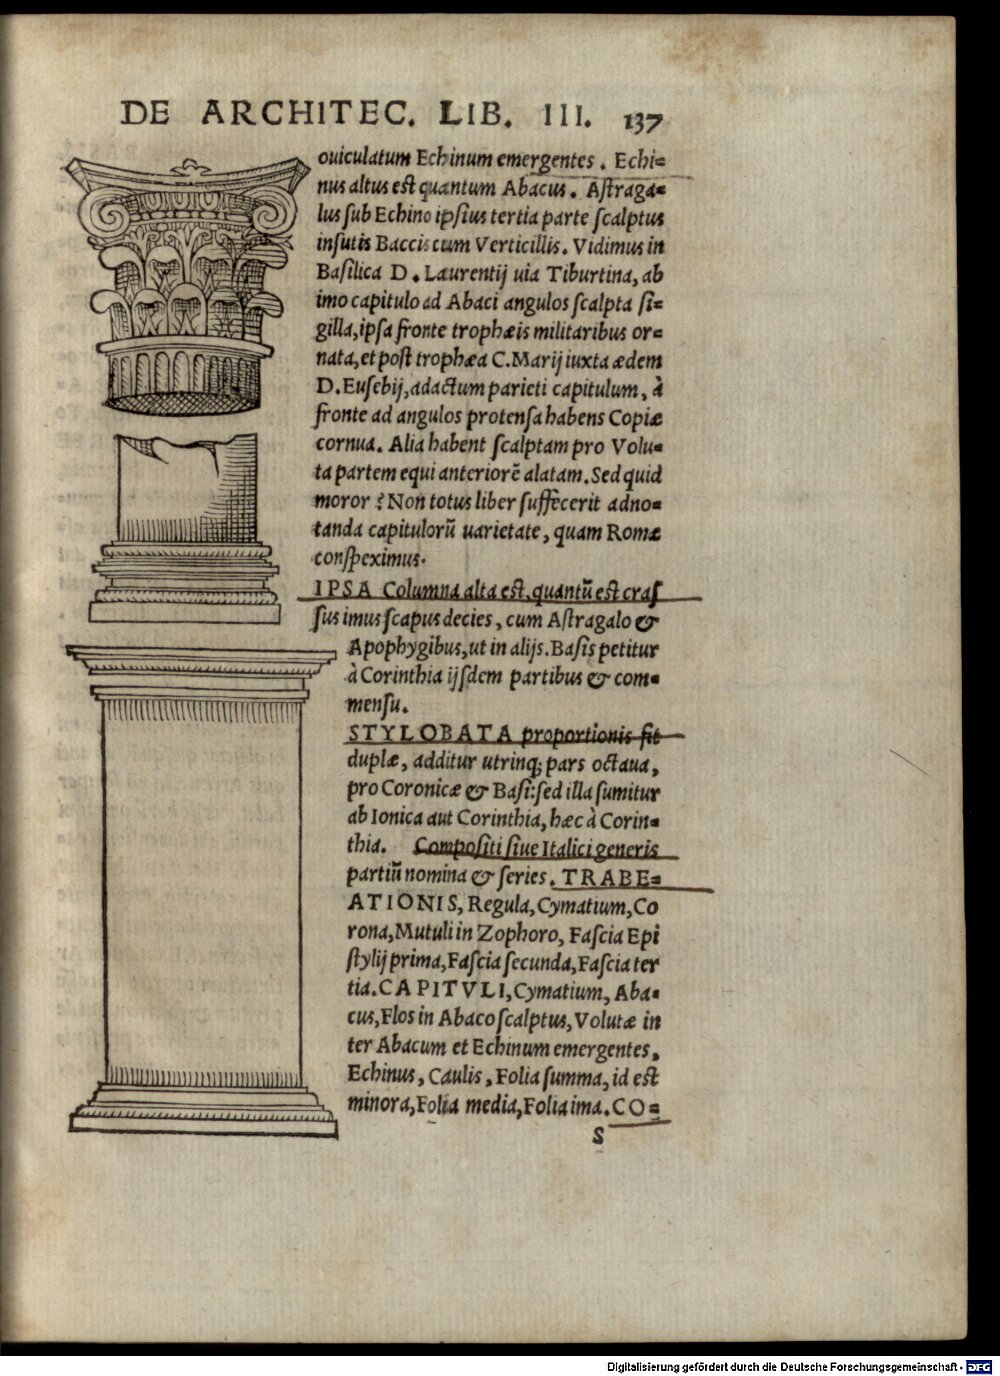 DE ARCHITEC. LIB. III. 137
ouiculatum Echinum emergentes. Echi=
nus altus est quantum Abacus. Astraga=
lus sub Echino ipsius tertia parte scalptus
insutis Baccis cum Verticillis. Vidimus in
Basilica D. Laurentij uia Tiburtina, ab
imo capitulo ad Abaci angulos scalpta si=
gilla, ipsa fronte trophæis militaribus or=
nata, et post trophæa C. Marij iuxta ædem
D. Eusebij, adactum parieti capitulum, à
fronte ad angulos protensa habens Copiæ
cornua. Alia habent scalptam pro Volu=
ta partem equi anteriorē alatam. Sed quid
moror? Non totus liber suffecerit adno=
tanda capitulorū uarietate, quam Romæ
conspeximus.
IPSA Columna alta est, quantū est cras
sus imus scapus decies, cum Astragalo &
Apophygibus, ut in alijs. Basis petitur
à Corinthia ijsdem partibus & com=
mensu.
STYLOBATA proportionis fit
duplæ, additur utrinq; pars octaua,
pro Coronicæ & Basi: sed illa sumitur
ab Ionica aut Corinthia, hæc à Corin=
thia. Compositi siue Italici generis
partiū nomina & series. TRABE=
ATIONIS, Regula, Cymatium, Co
rona, Mutuli in Zophoro, Fascia Epi
stylij prima, Fascia secunda, Fascia ter
tia. CAPITVLI, Cymatium, Aba=
cus, Flos in Abaco scalptus, Volutæ in
ter Abacum et Echinum emergentes,
Echinus, Caulis, Folia summa, id est
minora, Folia media, Folia ima. CO=
S
Digitalisierung gefördert durch die Deutsche Forschungsgemeinschaft - DFG